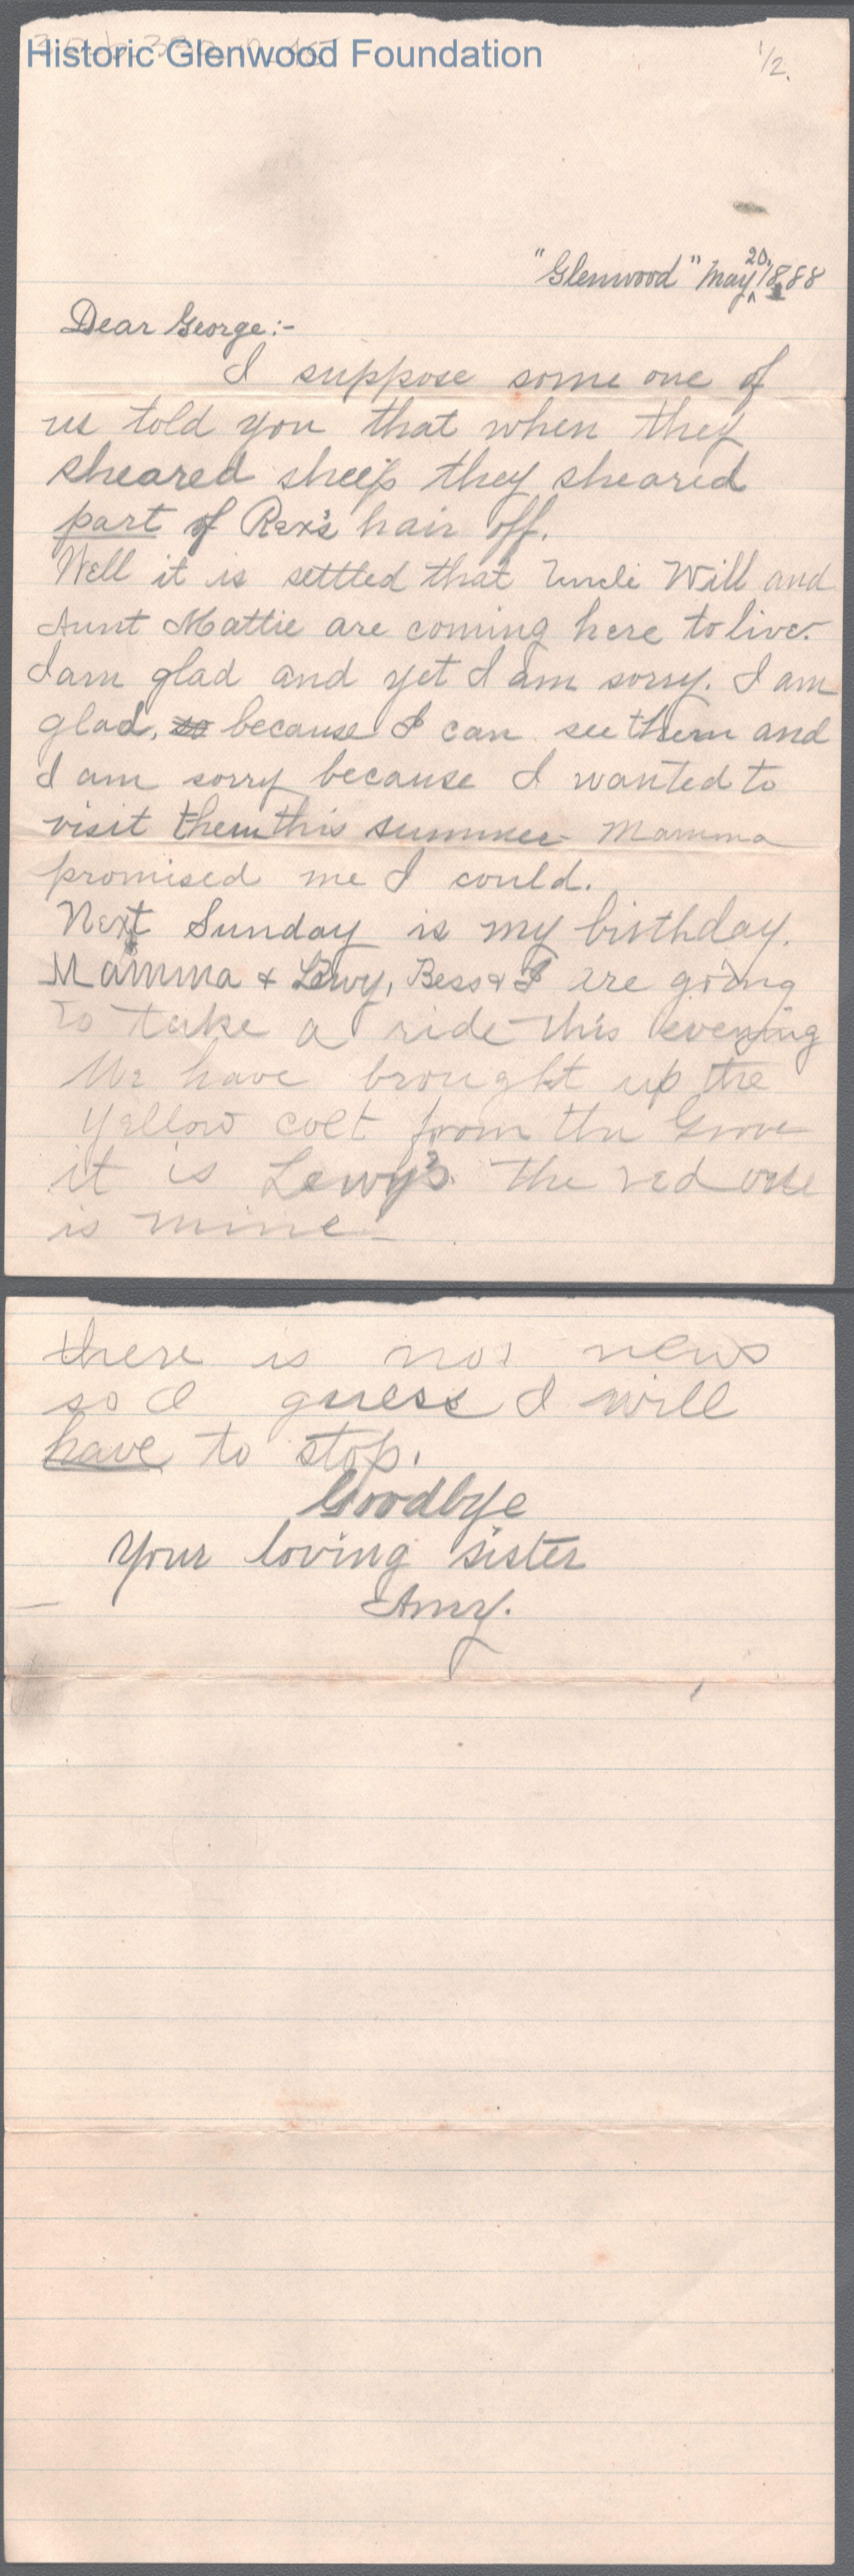 Historic Glenwood Foundation
1/2.
"Glenwood" May 20, 1888
Dear George:-
I suppose some one of
us told you that when they
sheared sheep they sheared
part of Rex's hair off.
Well it is settled that Uncle Will and
Aunt Mattie are coming here to live.
I am glad and yet I am sorry. I am
glad, so because I can see them and
I am sorry because I wanted to
visit them this summer Mamma
promised me I could.
Next Sunday is my birthday.
Mamma & Lewy, Bess & I are going
to take a ride this evening
We have brought up the
yellow colt from the Grove
it is Lewy's. the red one
is mine-
there is no news
so I guess I will
have to stop.
Goodbye
Your loving sister
Amy.